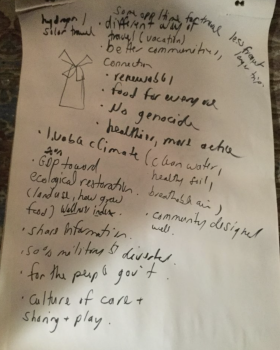 hydrogen / solar travel
Some opp time for travel
less frequent longer trips
• different way of travel (vacation)
• better communities,
Connection
• renewable,
• food for everyone
• No genocide
• healthier, more active
• livable climate (clean water,
healthy soil,
breathable air)
• GDP toward
ecological restoration
(land use, how grow
food)
• community designed
well.
• share information.
• 50% military $ diverted
• for the people gov't.
• culture of care +
sharing + play.